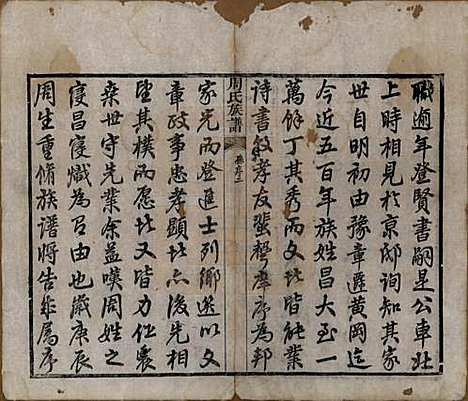 職逾年登賢書嗣是公車北
上時相見於京邸詢知其家
世自明初由豫章遷黄岡迄
今近五百年族姓昌大至一
萬餘丁其秀而文者皆能業
詩書敦孝友蜚聲庠序為邦
周氏族譜
家光而登進士列鄉選以文
章政事忠孝顯者亦後先相
望其樸而愿者又皆力仕農
桒世守先業余益嘆周姓之
寖昌寖熾為有由也歲庚辰
周生重脩族譜將告成屬序